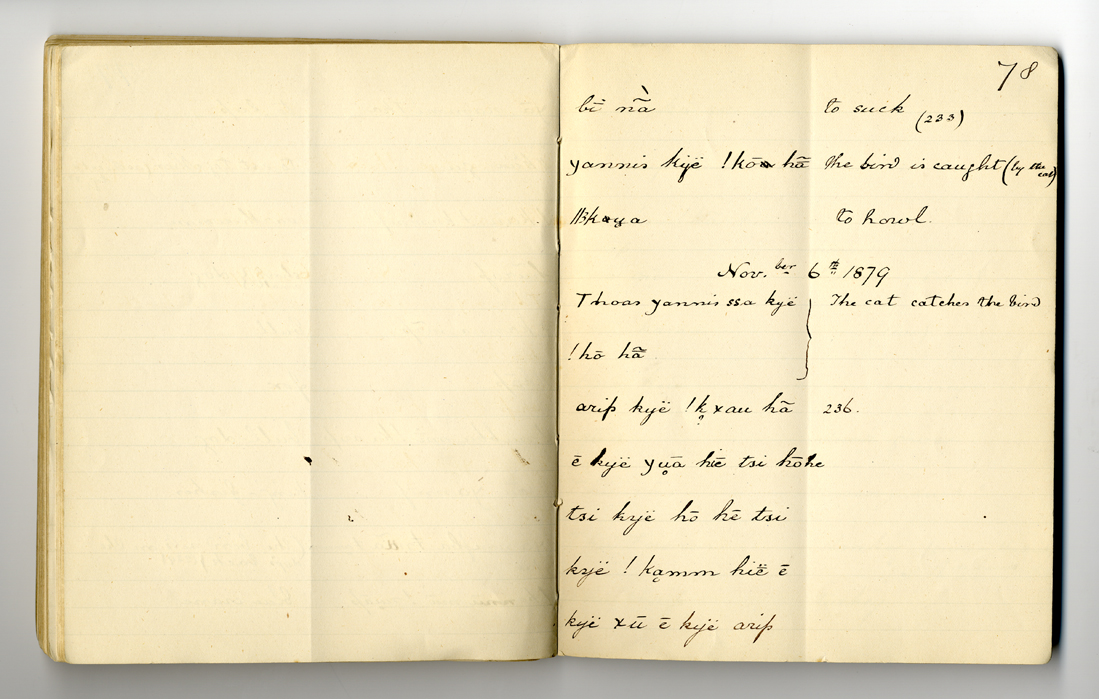 78
bī nã̀ to suck (233)
yannis kyë !kō hã the bird is caught (by the cat)
to howl.
Nov.ber 6th 1879
Thoas yannis ssa kyë } The cat catches the bird
!hō hã
arip kyë !k̥xau hã 236.
ē kyë yṳ̄a hīē tsi hōhe
tsi kyë hō hē tsi
kyë !ka̤mm hïē ē
kyë xū ē kyë arip